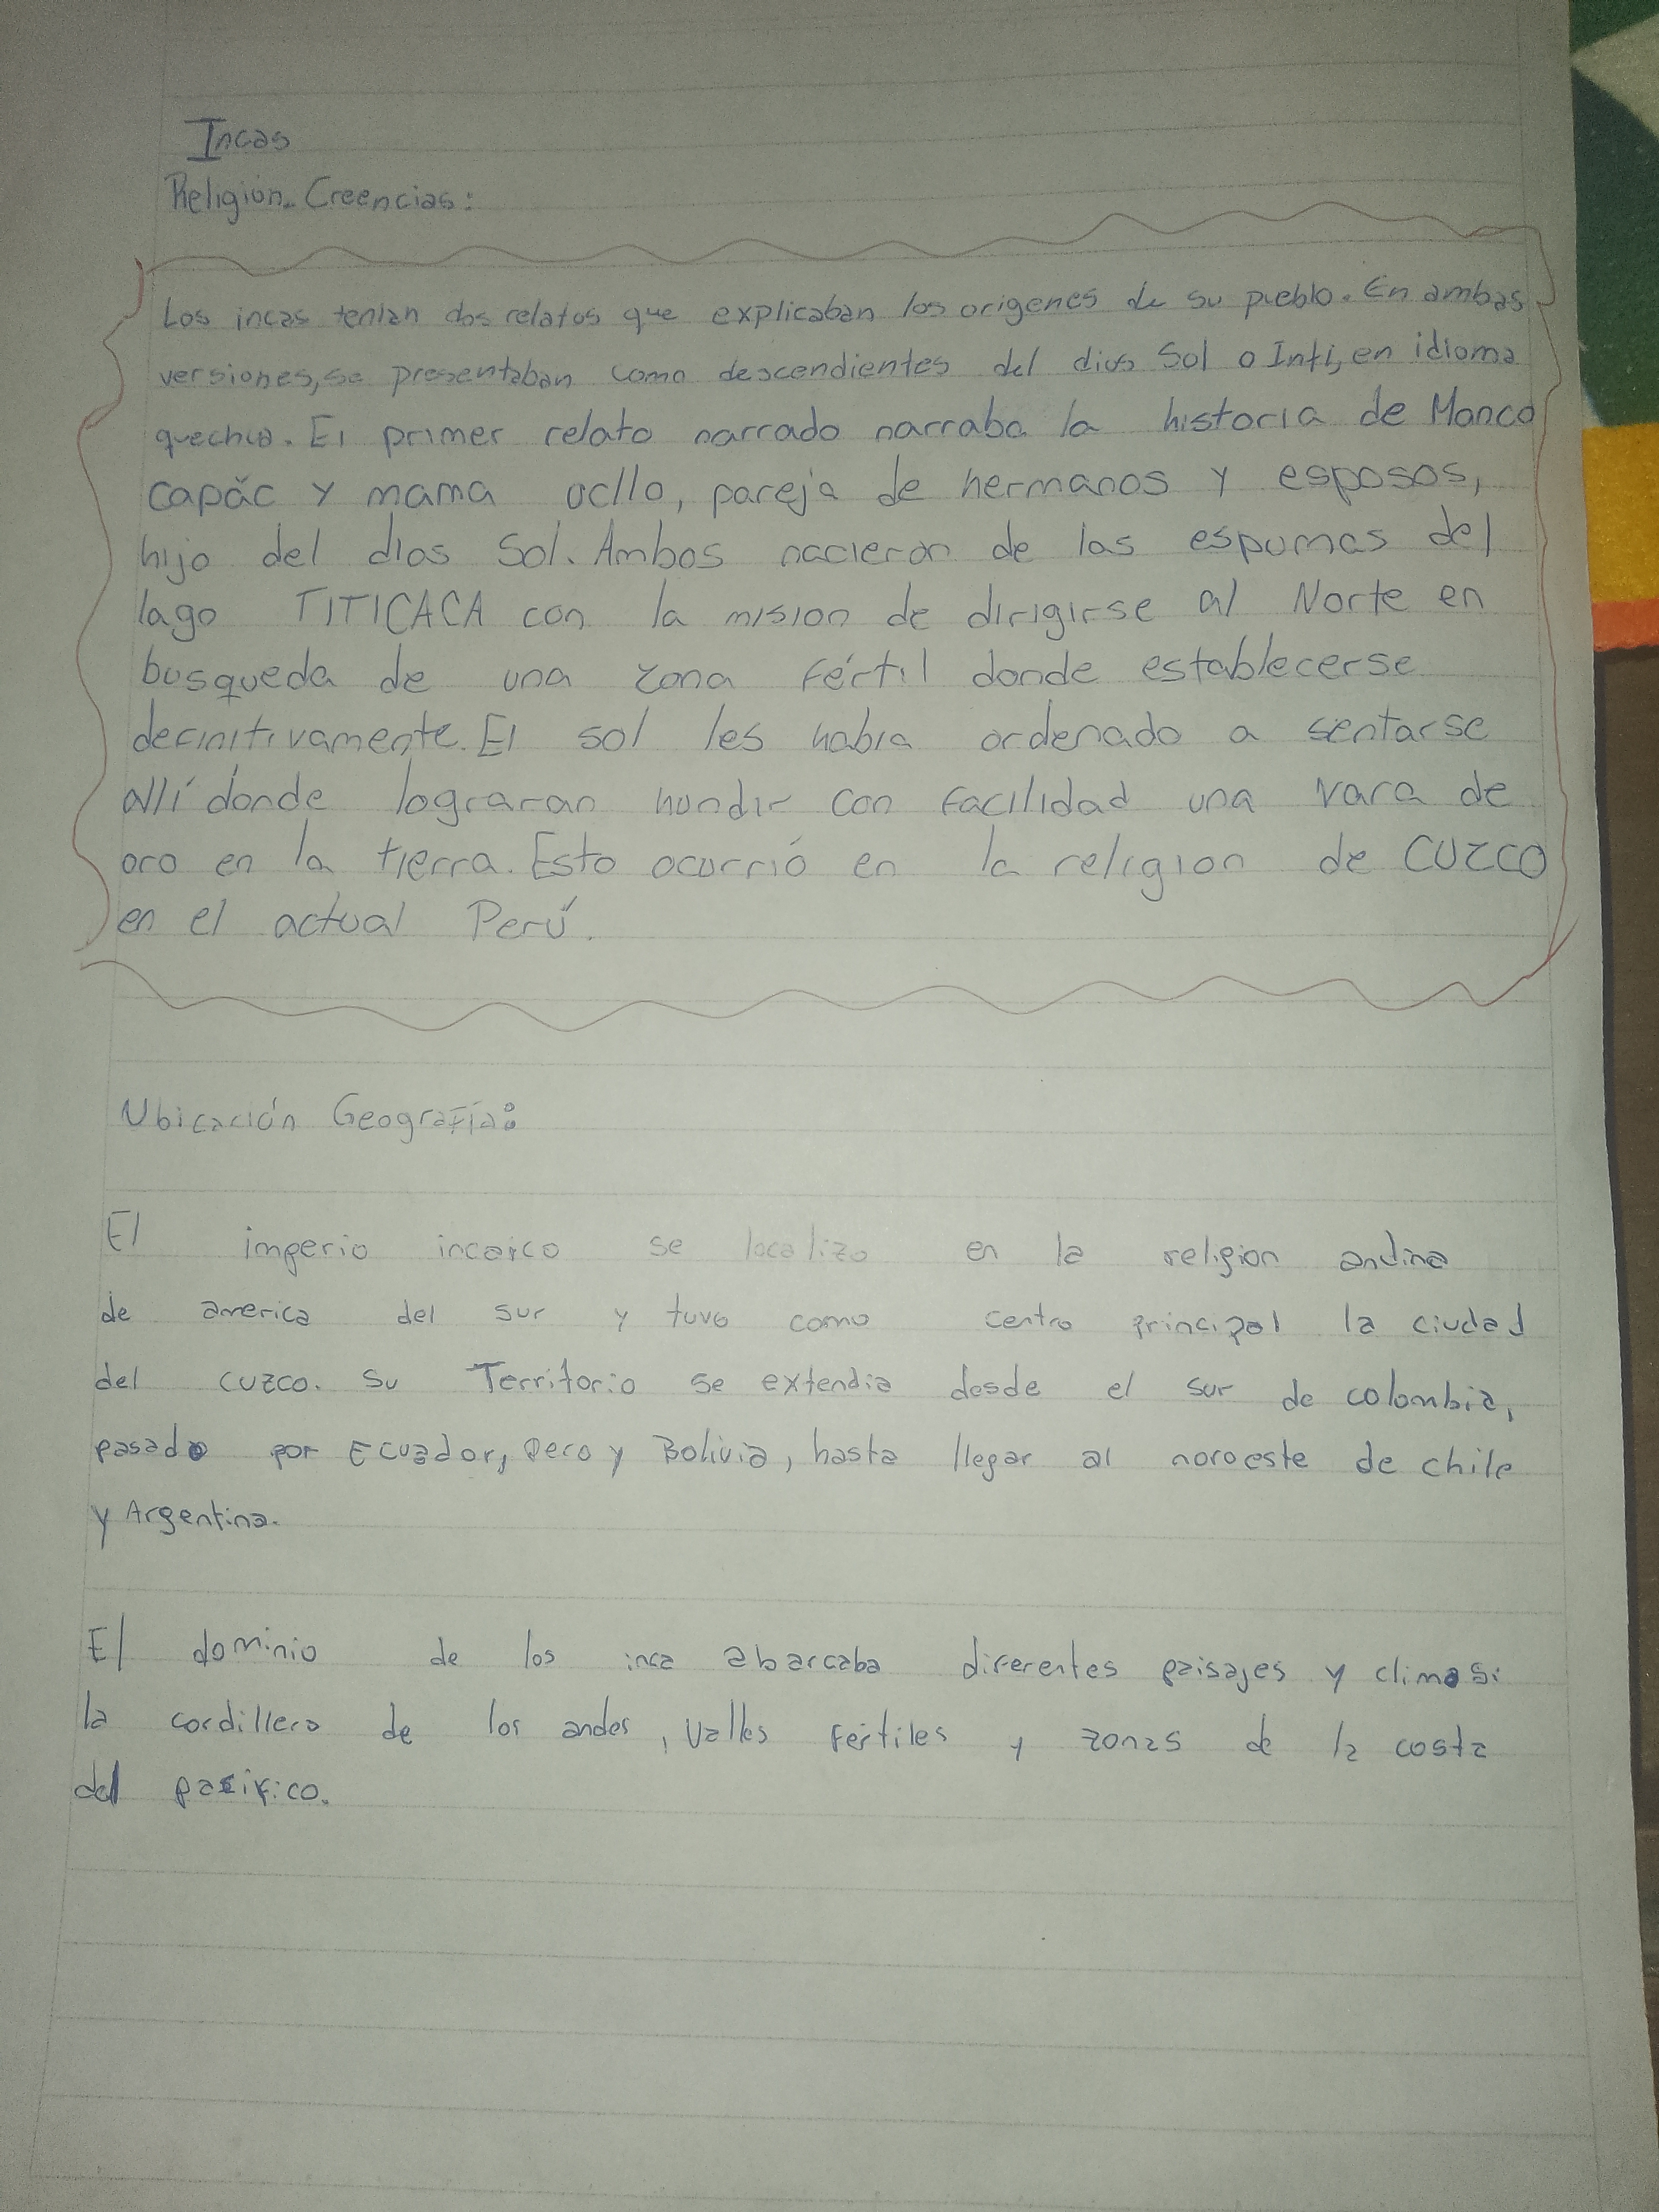 Incas
Religión. Creencias:
Los incas tenían dos relatos que explicaban los origenes de su pueblo. En ambas
versiones, se presentaban como descendientes del dios Sol o Inti, en idioma
quechua. El primer relato narrado narraba la historia de Manco
capác y mama ocllo, pareja de hermanos y esposos,
hijo del dios Sol. Ambos nacieron de las espumas del
lago TITICACA con la mision de dirigirse al Norte en
busqueda de una zona fértil donde establecerse
definitivamente. El sol les habia ordenado a sentarse
allí donde lograran hundir con facilidad una vara de
oro en la tierra. Esto ocurrió en la religion de CUZCO
en el actual Perú.
Ubicación Geografía:
El imperio incaico se localizo en la religion andina
de america del sur y tuvo como centro principal la ciudad
del cuzco. Su Territorio se extendia desde el sur de colombia,
pasado por Ecuador, Pero y Bolivia, hasta llegar al noroeste de chile
y Argentina.
El dominio de los inca abarcaba diferentes paisajes y climas:
la cordillera de los andes, valles fértiles y zonas de la costa
del pasifico.